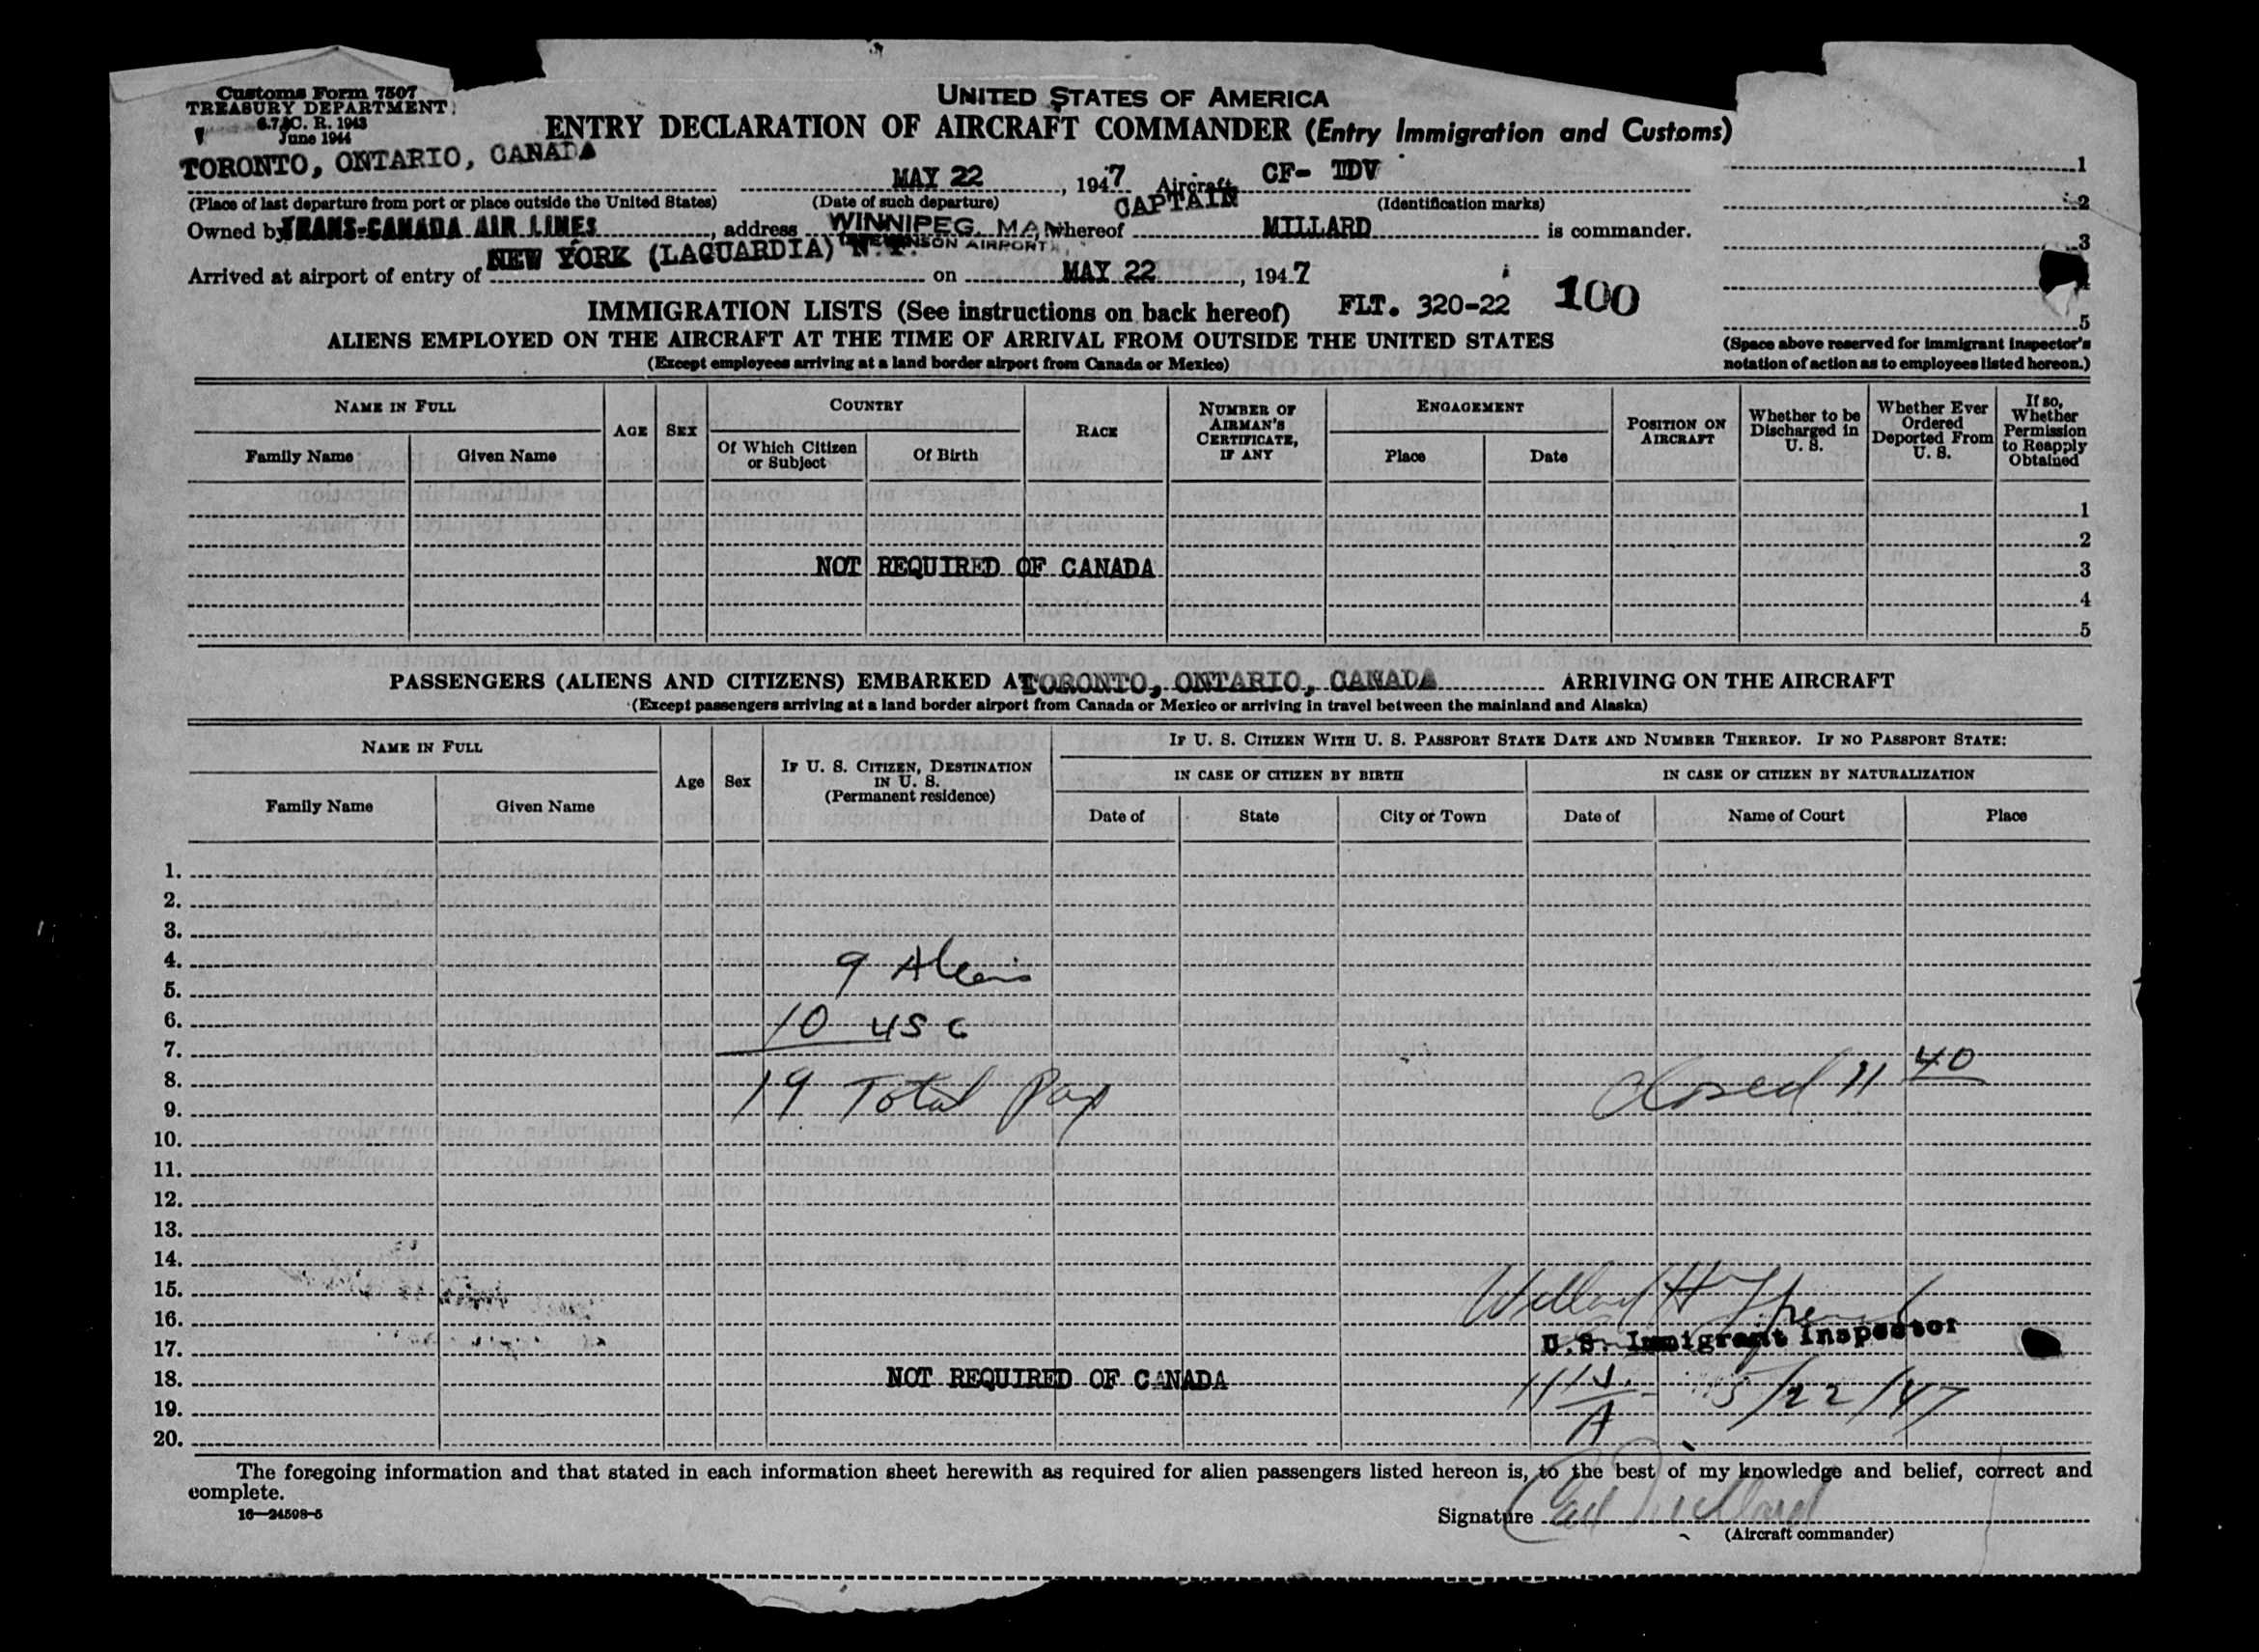 Customs Form 7507
TREASURY DEPARTMENT
6.7, C. R. 1943
June 1944
UNITED STATES OF AMERICA
ENTRY DECLARATION OF AIRCRAFT COMMANDER (Entry Immigration and Customs)
TORONTO, ONTARIO, CANADA MAY 22, 1947 Aircraft CF- TDV
(Place of last departure from port or place outside the United States) (Date of such departure) (Identification marks)
Owned by TRANS-CANADA AIR LINES, address WINNIPEG, MAN whereof CAPTAIN MILLARD is commander.
(STEVENSON AIRPORT)
Arrived at airport of entry of NEW YORK (LAGUARDIA) N.Y. on MAY 22, 1947
1
2
3
5
(Space above reserved for immigrant inspector's
notation of action as to employees listed hereon.)
IMMIGRATION LISTS (See instructions on back hereof) FLT. 320-22 100
ALIENS EMPLOYED ON THE AIRCRAFT AT THE TIME OF ARRIVAL FROM OUTSIDE THE UNITED STATES
(Except employees arriving at a land border airport from Canada or Mexico)
NAME IN FULL
Family Name Given Name
AGE
SEX
COUNTRY
Of Which Citizen or Subject
Of Birth
RACE
NUMBER OF AIRMAN'S CERTIFICATE, IF ANY
ENGAGEMENT
Place Date
POSITION ON AIRCRAFT
Whether to be Discharged in U. S.
Whether Ever Ordered Deported From U. S.
If so, Whether Permission to Reapply Obtained
1
2
NOT REQUIRED OF CANADA 3
4
5
PASSENGERS (ALIENS AND CITIZENS) EMBARKED AT TORONTO, ONTARIO, CANADA ARRIVING ON THE AIRCRAFT
(Except passengers arriving at a land border airport from Canada or Mexico or arriving in travel between the mainland and Alaska)
NAME IN FULL
Family Name Given Name
Age
Sex
IF U. S. CITIZEN, DESTINATION IN U. S.
(Permanent residence)
IF U. S. CITIZEN WITH U. S. PASSPORT STATE DATE AND NUMBER THEREOF. IF NO PASSPORT STATE:
IN CASE OF CITIZEN BY BIRTH IN CASE OF CITIZEN BY NATURALIZATION
Date of State City or Town Date of Name of Court Place
1.
2.
3.
4. 9 Aliens
5.
6. 10 USC
7.
8. 19 Total Pax Closed 11 40
9.
10.
11.
12.
13.
14.
15.
16.
17. U.S. Immigrant Inspector
18. NOT REQUIRED OF CANADA 5/22/47
19. A
20.
The foregoing information and that stated in each information sheet herewith as required for alien passengers listed hereon is, to the best of my knowledge and belief, correct and
complete.
16—24598-5
Signature Millard
(Aircraft commander)